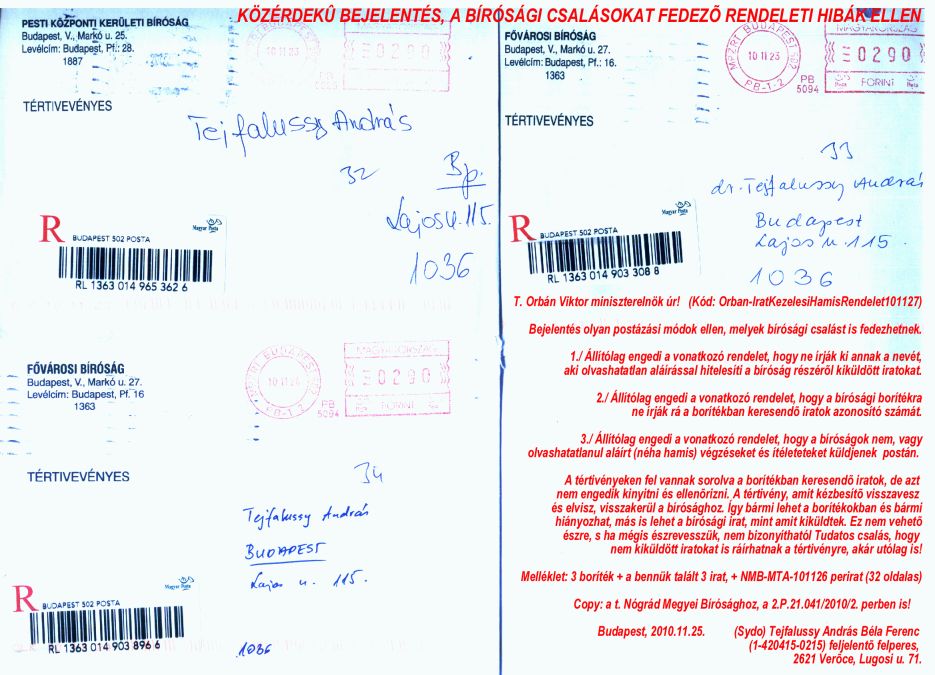 KÖZÉRDEKÛ BEJELENTÉS, A BÍRÓSÁGI CSALÁSOKAT FEDEZÕ RENDELETI HIBÁK ELLEN
PESTI KÖZPONTI KERÜLETI BÍRÓSÁG
Budapest, V., Markó u. 25.
Levélcím: Budapest, Pf.: 28.
1887
10 11 23
0290
TÉRTIVEVÉNYES
Tejfalussy András
32
Bp.
Lajos u. 115.
1036
R
Magyar Posta
BUDAPEST 502 POSTA
RL 1363 014 965 362 6
FŐVÁROSI BÍRÓSÁG
Budapest, V., Markó u. 27.
Levélcím: Budapest, Pf.: 16.
1363
MPZRT BUDAPEST 502
10 11 23
PB-1-2
PB
5094
MAGYARORSZÁG
0290
Posta FORINT Posta
TÉRTIVEVÉNYES
33
dr. Tejfalussy András
Budapest
Lajos u 115.
1036
R
Magyar Posta
BUDAPEST 502 POSTA
RL 1363 014 903 308 8
FŐVÁROSI BÍRÓSÁG
Budapest, V., Markó u. 27.
Levélcím: Budapest, Pf. 16
1363
MPZRT BUDAPEST 502
10 11 24
PB-1-2
PB
5094
MAGYARORSZÁG
0290
FORINT
TÉRTIVEVÉNYES
34
Tejfalussy András
BUDAPEST
Lajos u. 115.
1036
R
Magyar Posta
BUDAPEST 502 POSTA
RL 1363 014 903 896 6
T. Orbán Viktor miniszterelnök úr! (Kód: Orban-IratKezelesiHamisRendelet101127)
Bejelentés olyan postázási módok ellen, melyek bírósági csalást is fedezhetnek.
1./ Állítólag engedi a vonatkozó rendelet, hogy ne írják ki annak a nevét,
aki olvashatatlan aláírással hitelesíti a bíróság részéről kiküldött iratokat.
2./ Állítólag engedi a vonatkozó rendelet, hogy a bírósági borítékra
ne írják rá a borítékban keresendő iratok azonosító számát.
3./ Állítólag engedi a vonatkozó rendelet, hogy a bíróságok nem, vagy
olvashatatlanul aláírt (néha hamis) végzéseket és ítéleteteket küldjenek postán.
A tértivényeken fel vannak sorolva a borítékban keresendő iratok, de azt
nem engedik kinyitni és ellenőrizni. A tértivény, amit kézbesítő visszavesz
és elvisz, visszakerül a bírósághoz. Így bármi lehet a borítékokban és bármi
hiányozhat, más is lehet a bírósági irat, mint amit kiküldtek. Ez nem vehető
észre, s ha mégis észrevesszük, nem bizonyítható! Tudatos csalás, hogy
nem kiküldött iratokat is ráírhatnak a tértivényre, akár utólag is!
Melléklet: 3 boríték + a bennük talált 3 irat, + NMB-MTA-101126 perirat (32 oldalas)
Copy: a t. Nógrád Megyei Bírósághoz, a 2.P.21.041/2010/2. perben is!
Budapest, 2010.11.25. (Sydo) Tejfalussy András Béla Ferenc
(1-420415-0215) feljelentő felperes,
2621 Verőce, Lugosi u. 71.